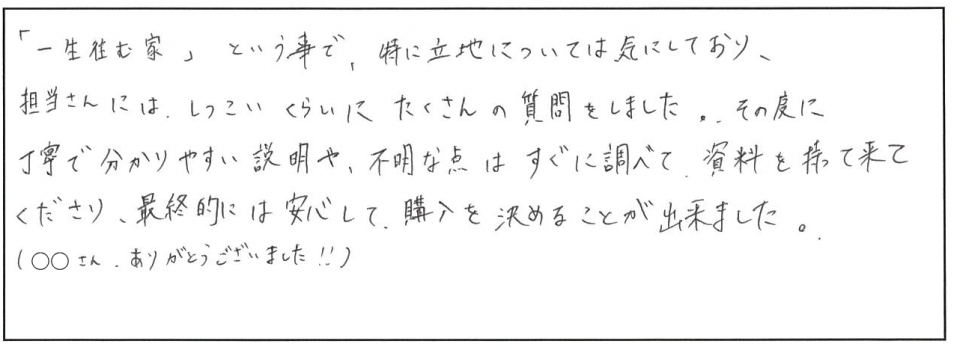 「一生住む家」という事で、特に立地については気にしており、
担当さんには、しつこいくらいにたくさんの質問をしました。その度に
丁寧で分かりやすい説明や、不明な点はすぐに調べて、資料を持って来て
くださり、最終的には安心して、購入を決めることが出来ました。
(○○さん、ありがとうございました!!)